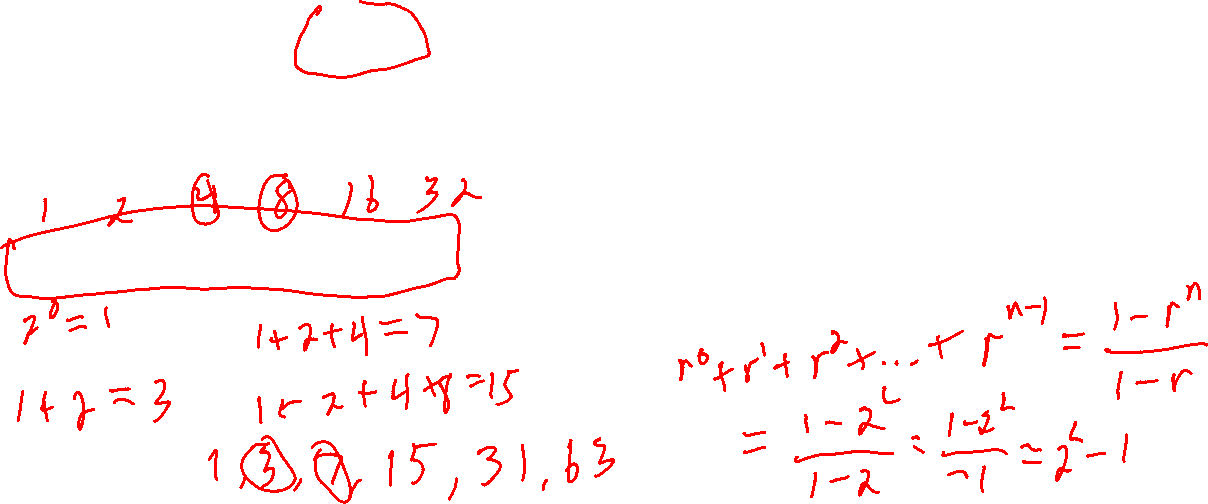 1 2 4 8 16 32
2^0 = 1
1+2+4=7
1+2=3
1+2+4+8=15
1, 3, 7, 15, 31, 63
r^0 + r^1 + r^2 + ... + r^{n-1} = \frac{1-r^n}{1-r}
= \frac{1-2^L}{1-2} = \frac{1-2^L}{-1} = 2^L - 1